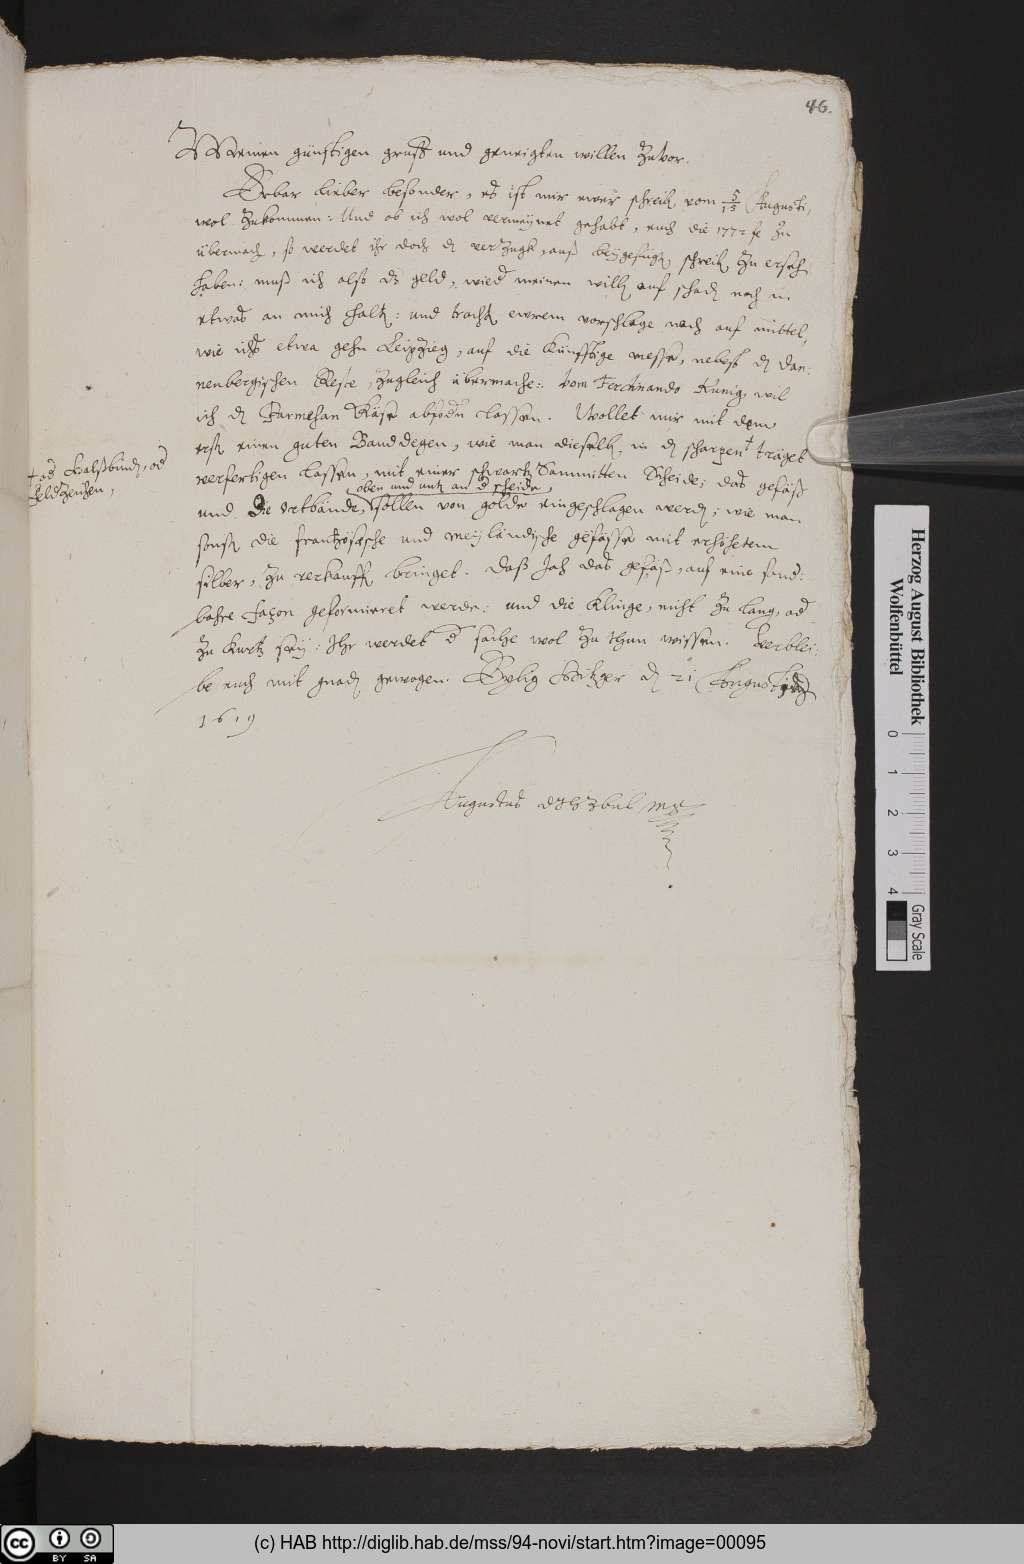 46.
Meinen günstigen gruß und geneigten willen zuvor.
Erbar lieber besonder, es ist mir ewer schreib vom 5/15 Augusti,
wol zukommen: Und ob ich wol vermeynet gehabt, euch die 1772 fl zu
übermach, so werdet ihr doch dz verzugk, auß beygefügt schreib zu erseh
haben: muß ich also dz geld, wied meinen will auf schad noch in
etwas an mich halt: und tracht ewrem vorschlage nach auf mittel,
wie ichs etwa gehn Leipzieg, auf die künfftige messe, nebest dz Dan:
nenbergischen Reste, zugleich übermache: vom Ferdinando Künig, wil
ich dz Parmesan Käse abfodern lassen. Wollet mir mit dem
erst einen guten Banddegen, wie man dieselb in dz scharpen† träget
verfertigen lassen, mit einer schwartz Sammitten Scheide; das gefäß
oben und unt an d scheide,
und die ortbände, sollen von golde eingeschlagen werd; wie man
sonst die frantzösische und meyländische gefässe mit erhöhetem
silber, zu verkauff bringet. Daß Jah das gefäß, auf eine sond:
bahre façon geformieret werde: und die Klinge, nicht zu lang, od
zu kurtz sey: Ihr werdet d sache wol zu thun wissen. Verblei:
be euch mit gnad gewogen. Eylig Hitzger dz 21 Augusti
1619
† od Halßbünd, od
feldtzeichen,
Augustus
Herzog August Bibliothek
Wolfenbüttel
0 1 2 3 4
Gray Scale
cc BY SA
(c) HAB http://diglib.hab.de/mss/94-novi/start.htm?image=00095